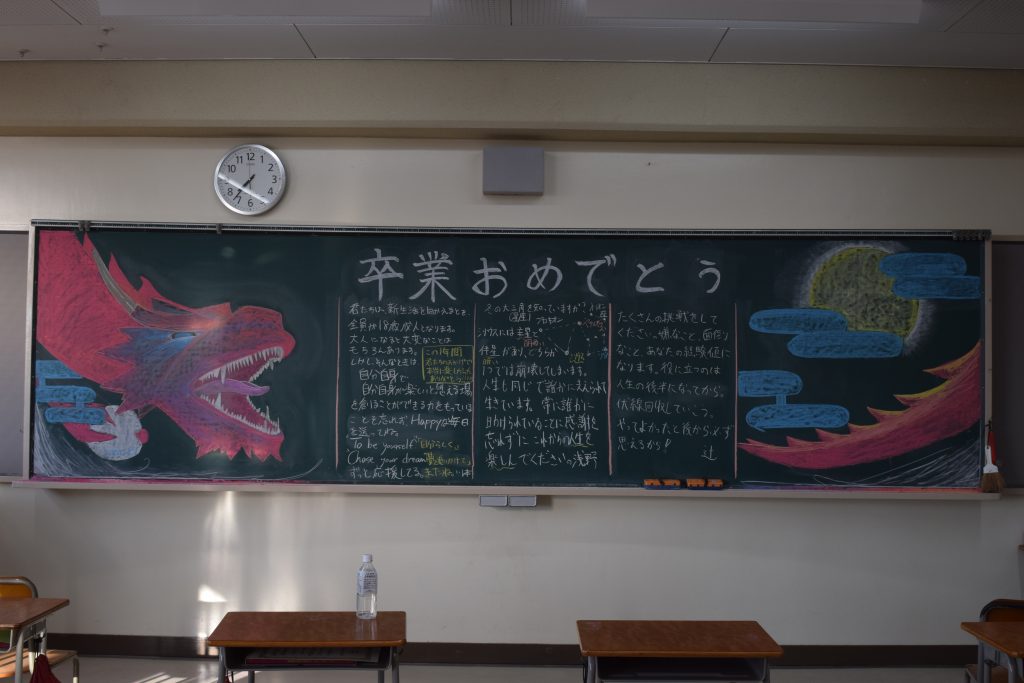 卒業おめでとう
君たちは、新生活を
全員が18歳成人となります。
大人になると大変なことは
もちろんあります。
しかしそんなときは
自分自身で
自分自身が楽しいと思える場
を創ることができる力をもっている
ことを忘れず Happyな毎日
を送ってね。
To be yourself「自分らしく」
Chase your dream
ずっと応援してる。
この1年間
君たちのおかげで
本当に楽しかった
ありがとう
冬の大三角を知っていますか?
1つでは崩壊してしまいます。
人生も同じで誰かに支えられて
生きています。常に誰かに
助けられていることに感謝を
忘れずに これからの人生を
楽しんでください。 浅野
たくさんの挑戦をして
ください。嫌なこと、面倒
なこと、あなたの経験値に
なります。役に立つのは
人生の後半になってから。
伏線回収していこう。
やってよかったと後から必ず
思えるから!
辻
12 1 2 3 4 5 6 7 8 9 10 11